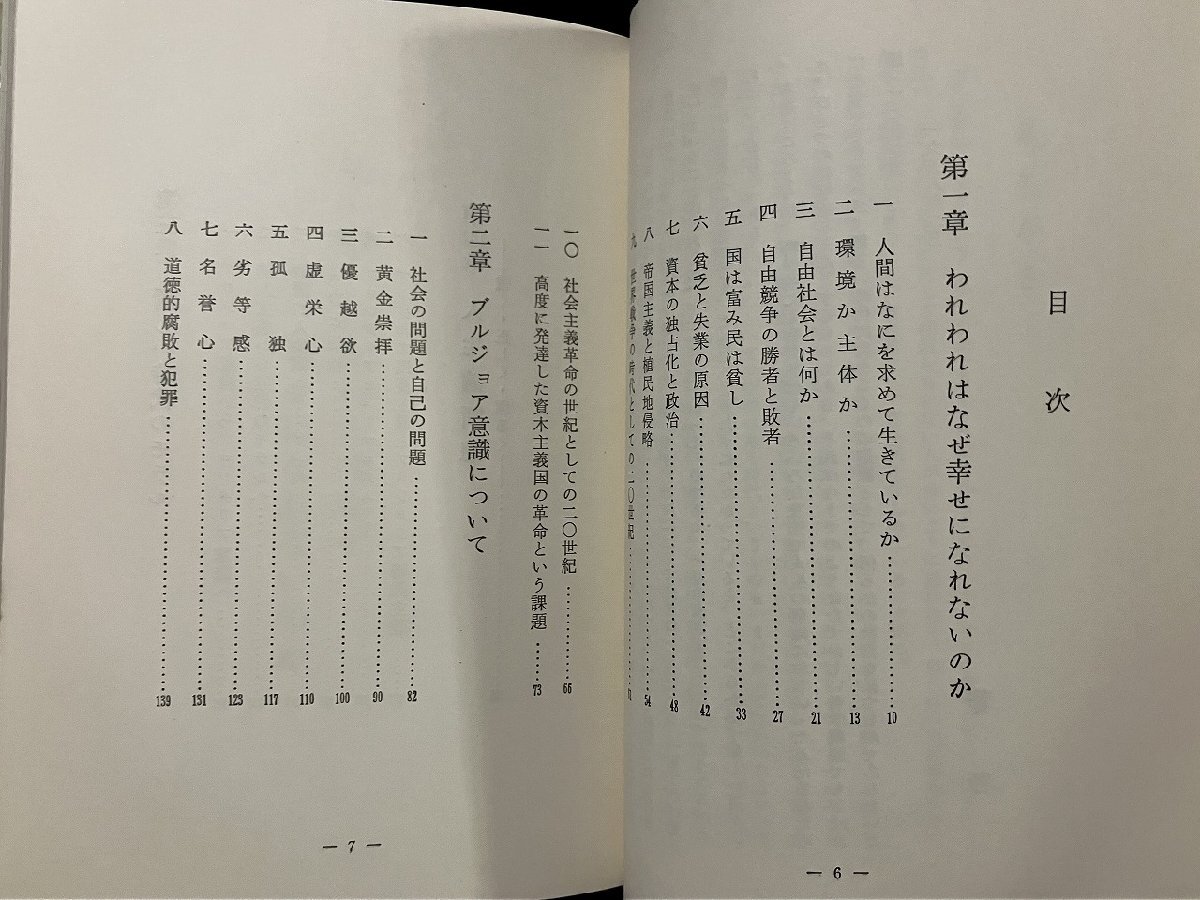 目次
第一章 われわれはなぜ幸せになれないのか
一 人間はなにを求めて生きているか……………10
二 環境か主体か……………13
三 自由社会とは何か……………21
四 自由競争の勝者と敗者……………27
五 国は富み民は貧し……………33
六 貧乏と失業の原因……………42
七 資本の独占化と政治……………48
八 帝国主義と植民地侵略……………54
九 世界戦争の時代としての二〇世紀……………
— 6 —
一〇 社会主義革命の世紀としての二〇世紀……………66
一一 高度に発達した資本主義国の革命という課題……73
第二章 ブルジョア意識について
一 社会の問題と自己の問題……………82
二 黄金崇拝……………90
三 優越欲……………100
四 虚栄心……………110
五 孤独……………117
六 劣等感……………123
七 名誉心……………131
八 道徳的腐敗と犯罪……………139
— 7 —